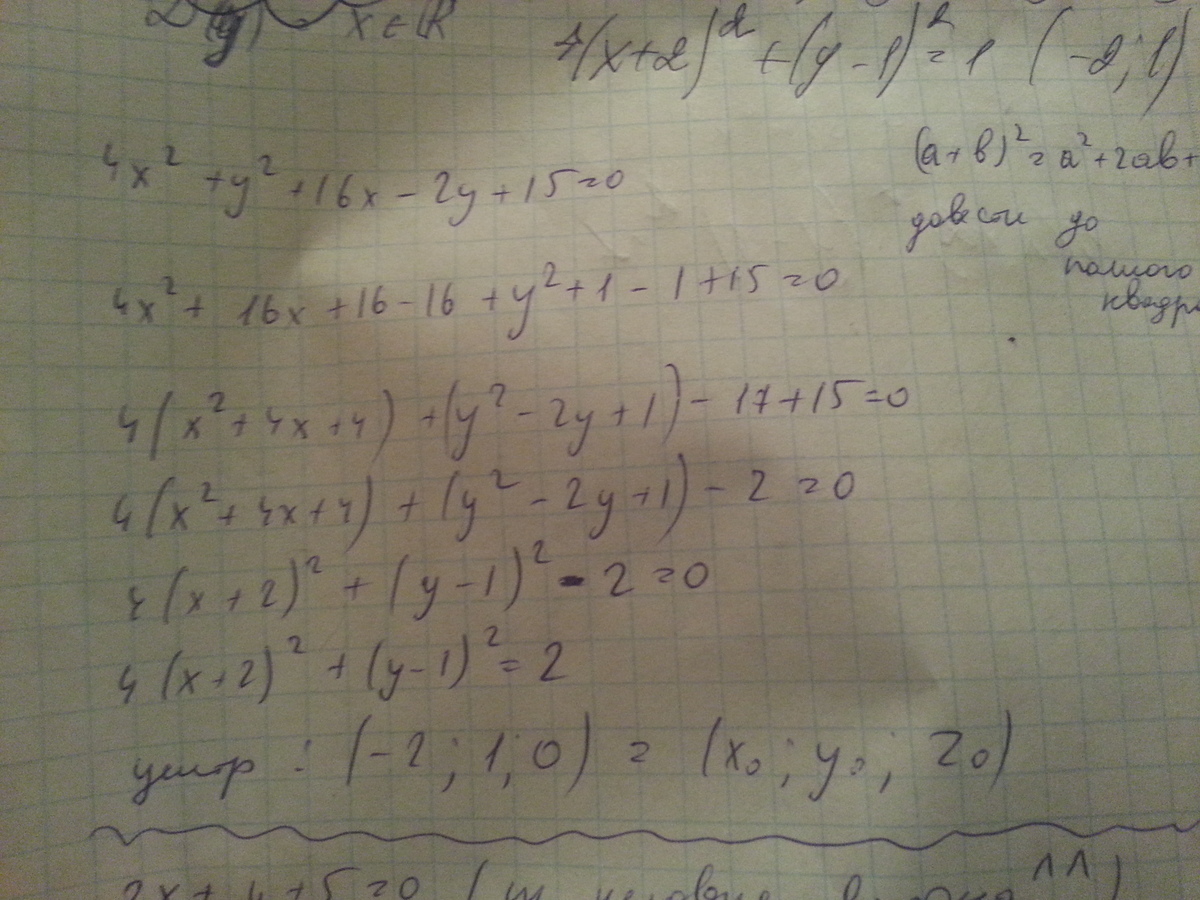 x ∈ ℝ
4(x+2)² + (y-1)² = 1 (-2; 1)
4x² + y² + 16x - 2y + 15 = 0
(a+b)² = a² + 2ab +
довести до
полного
квадра
4x² + 16x + 16 - 16 + y² + 1 - 1 + 15 = 0
4(x² + 4x + 4) + (y² - 2y + 1) - 17 + 15 = 0
4(x² + 4x + 4) + (y² - 2y + 1) - 2 = 0
4(x+2)² + (y-1)² - 2 = 0
4(x+2)² + (y-1)² = 2
центр : (-2; 1; 0) = (x₀; y₀; z₀)